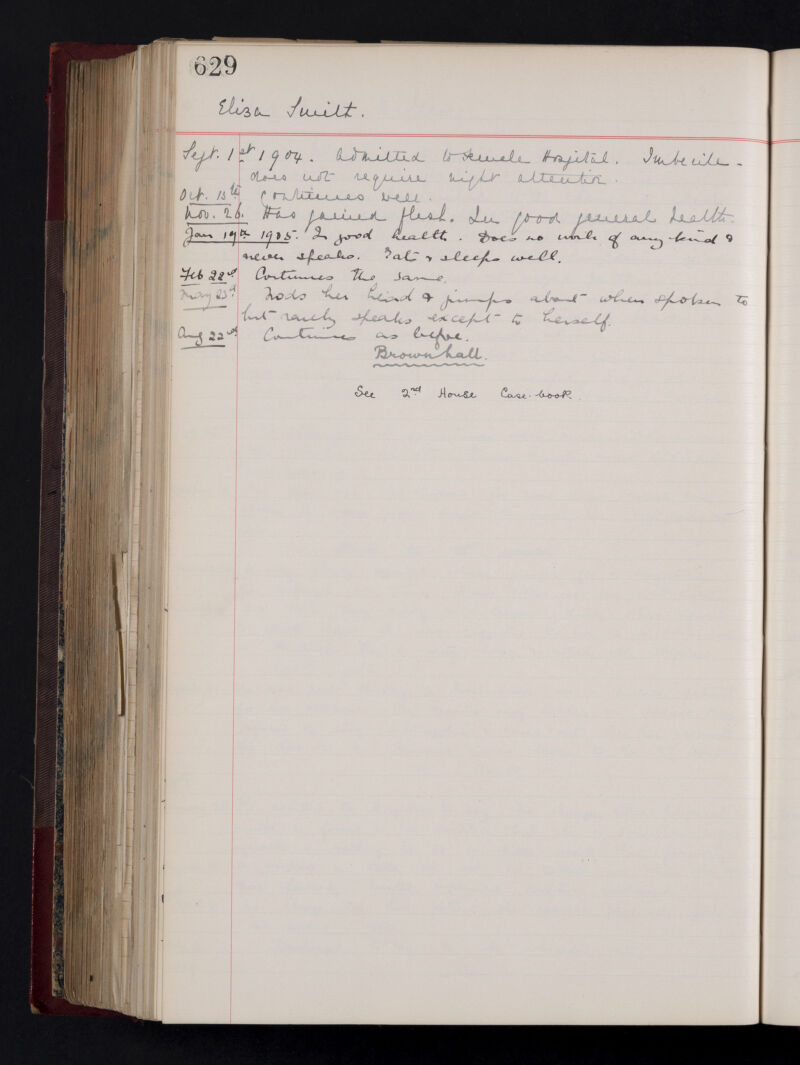 629
Eliza Smith.
Sept. 1st 1904. Admitted to Female Hospital. Imbecile -
does not require night attention.
Oct. 13th Continues well.
Nov. 26. Has gained flesh. In good general health.
Jan 19th 1905. In good health. Does no work of any kind &
never speaks. Eats & sleeps well.
Feb 22nd Continues the same.
May 23d. Nods her head & jumps about when spoken to
but rarely speaks except to herself.
Aug 22nd Continues as before.
Brownhall.
See 2nd House Case-book.